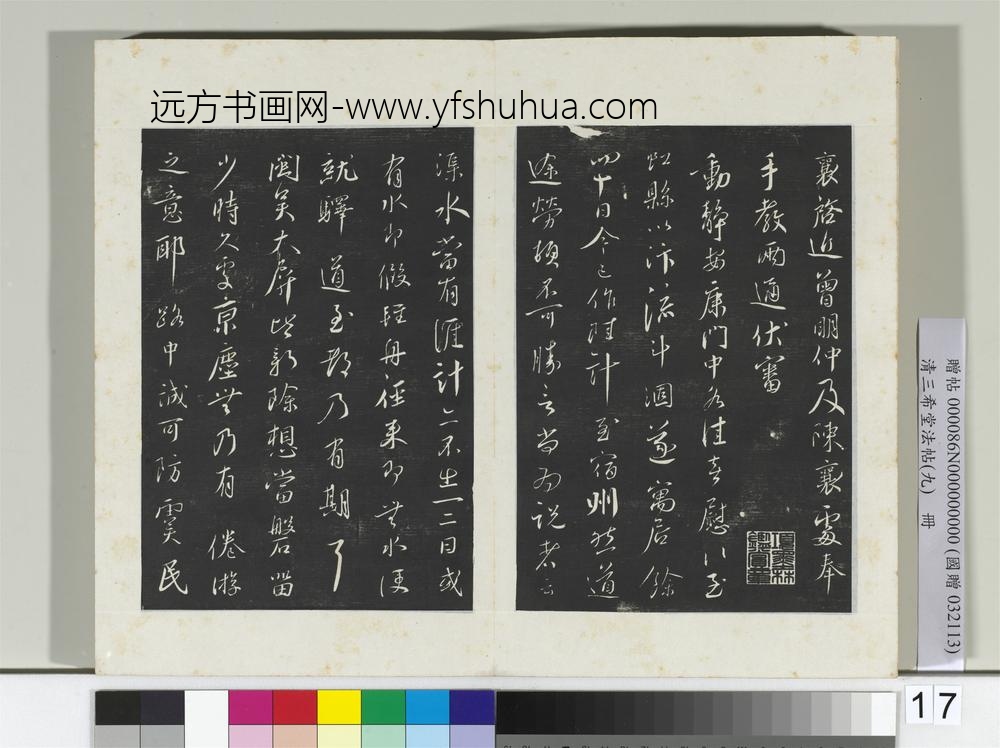 远方书画网-www.yfshuhua.com
襄啓近曾明仲及陳襄處奉
手教兩通伏審
動静安康門中各佳喜慰以至
虹縣以汴流斗涸遂寓居餘
四十日今已作陸計至宿州然道
途勞頓不可勝言尚為說者云
渠水當有涯計亦不出一二日或
有水即假輕舟徑來即無水便
就驛道至都乃有期耳
閩吳大屏皆新除想當磐留
少時久處京塵無乃有倦游
之意耶路中誠可防虞民
項墨林鑑賞章
贈帖 000086N000000000 (國贈 032113)
清三希堂法帖(九) 冊
17